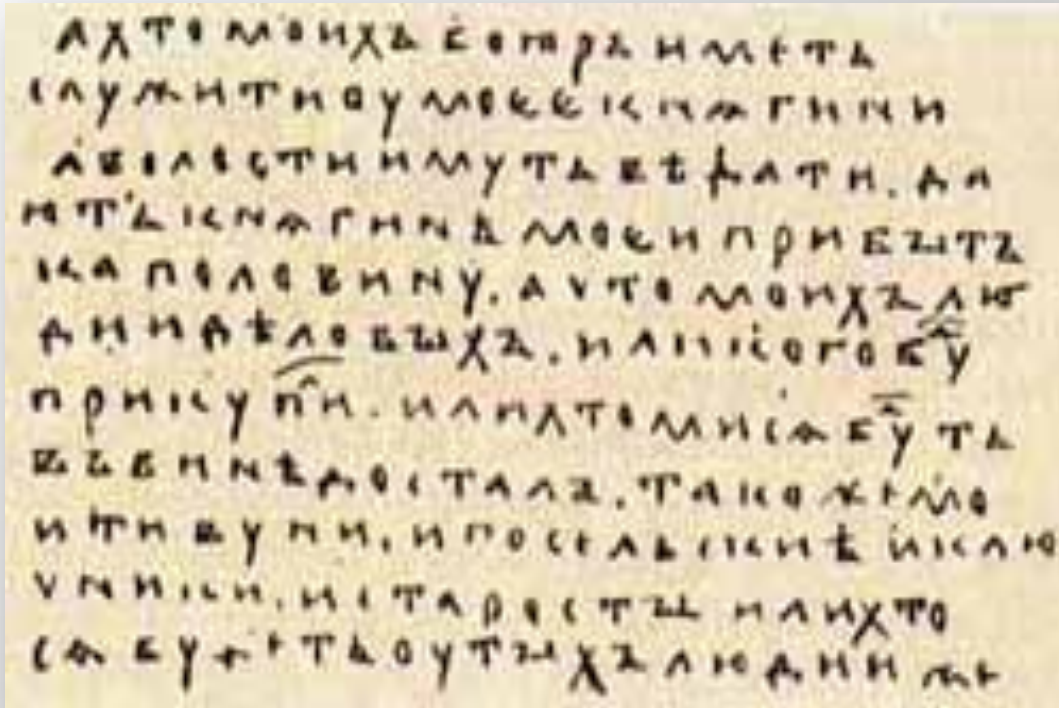 АХТОМОИХЪ БОꙖРЪ ИМЕТЬ
СЛУЖИТИОУМОЕЕКНѦГИНИ
АВОЛОСТИИМУТЬВѢДАТИ. ДА
ЮТЬКНѦГИНѢМОЕИПРИБЫТЪ
КАПОЛОВИНУ. АЧТОМОИХЪЛЮ
ДИИДѢЛОВЫХЪ. ИЛИКОГОБУ
ПРИКУПИ. ИЛИХТОМИСѦБУТЬ
ВЪВИНѢДОСТАЛЪ. ТАКОЖЕМО
ИТИВУНИ. ИПОСЕЛЬСКИѢ ИКЛЮ
ЧНИКИ. ИСТАРОСТЫ ИЛИХТО
СѦБУДЕТЬОУТЫХЪЛЮДИИ ЖЕ